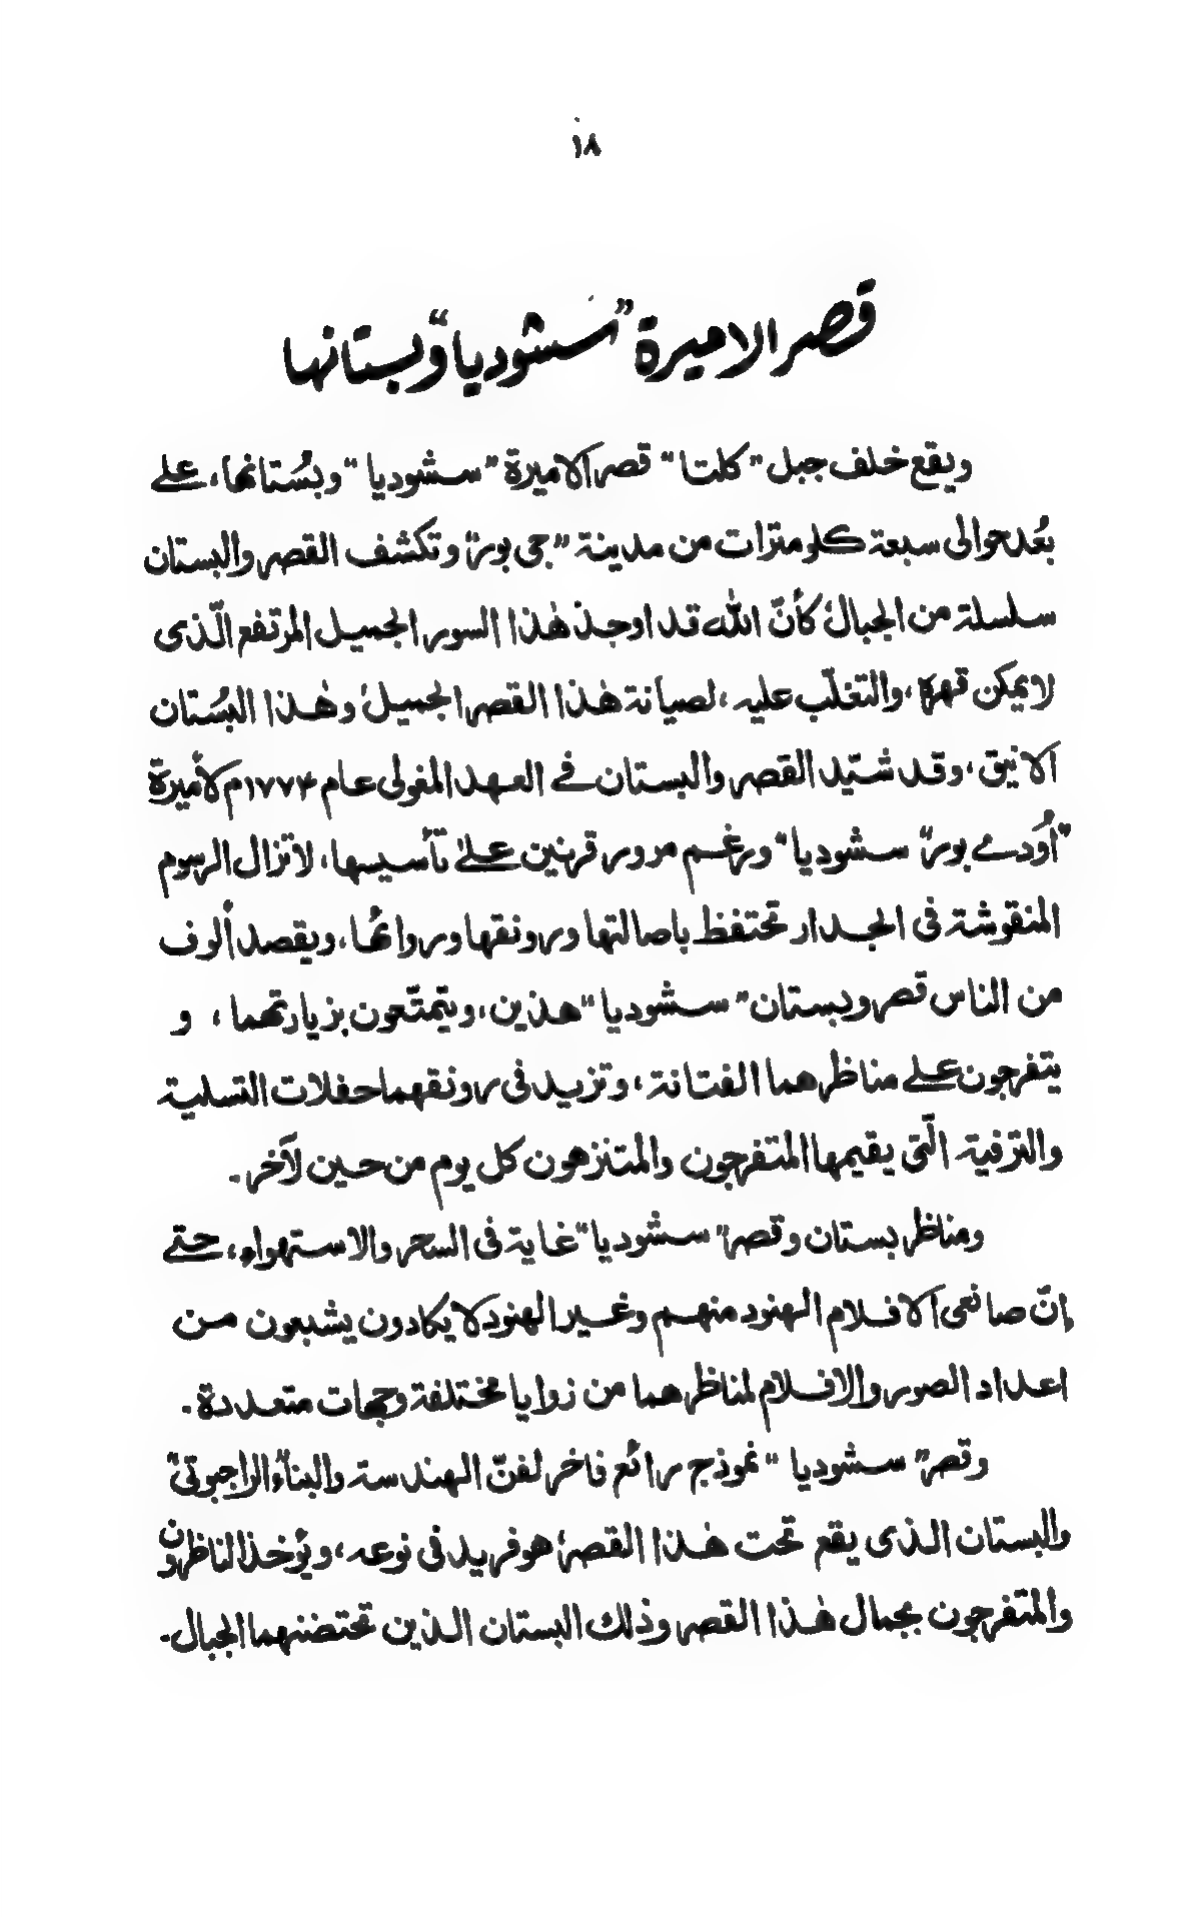 ١٨
قصر الاميرة "سشوديا" وبستانها
ويقع خلف جبل "كلتا" قصر الاميرة "سشوديا" وبُستانها، على
بُعد حوالى سبعة كلو مترات من مدينة "جى بور" وتكشف القصر والبستان
سلسلة من الجبال، كأنّ الله قد اوجد هٰذا السور الجميل المرتفع الّذى
لا يمكن قهره، والتغلّب عليه، لصيانة هٰذا القصر الجميل، وهٰذا البُستان
الانيق، وقد شيّد القصر والبستان فى العهد المغولى عام ١٧٧٤م لأميرة
"أودے بور" سشوديا" ورغم مرور قرنين علىٰ تأسيسها، لا تزال الرسوم
المنقوشة فى الجدار تحتفظ باصالتها ورونقها وروائها، ويقصد ألوف
من الناس قصر وبستان "سشوديا" هذين، ويتمتّعون بزيارتهما، و
يتفرجون على مناظرهما الفتانة، وتزيد فى رونقهما حفلات التسلية
والترفية الّتى يقيمها المتفرجون والمتنزهون كل يوم من حين لآخر.
ومناظر بستان وقصر "سشوديا" غاية فى السحر والاستهواء، حتى
إنّ صانعى الافلام الهنود منهم وغير الهنود لا يكادون يشبعون من
اعداد الصور والافلام لمناظرهما من زوايا مختلفة وجهات متعددة.
وقصر "سشوديا" نموذج رائع فاخر لفنّ الهندسة والبناء "الراجبوتى"
والبستان الذى يقع تحت هٰذا القصر، هو فريد فى نوعه، ويؤخذ الناظرون
والمتفرجون بجمال هٰذا القصر وذلك البستان الذين تحتضنهما الجبال.